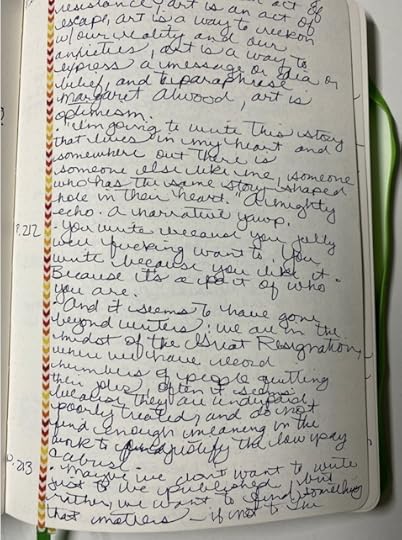 resistance, art is an act of
escape, art is a way to reckon
w/ our reality and our
anxieties, art is a way to
express a message or idea or
belief, and to paraphrase
Margaret Atwood, art is
optimism.
"I'm going to write this story
that lives in my heart and
somewhere out there is
someone else like me, someone
who has the same story-shaped
hole in their heart." A mighty
echo. A narrative yawp.
p.212 · You write because you jolly
well fucking want to. You
write because you like it.
Because it's a part of who
you are.
· And it seems to have gone
beyond writers; we are in the
midst of the Great Resignation,
where we have record
numbers of people quitting
their jobs, often it seems
because they are underpaid,
poorly treated, and do not
find enough meaning in the
work to justify the low pay
& abuse.
p.213 · Maybe we don't want to write
just to be published, but
rather, we want to find something
that matters — if not to the